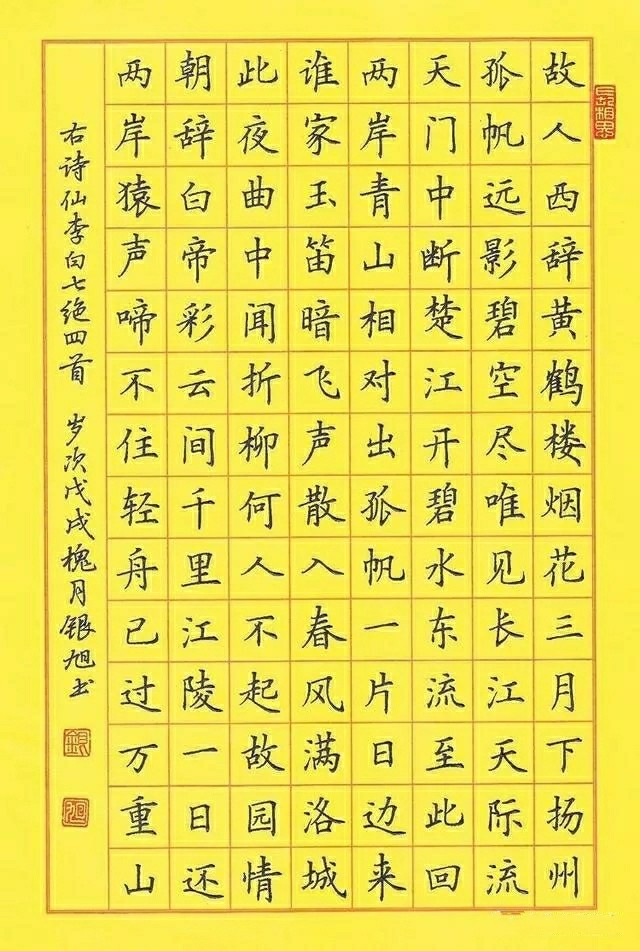 长相思
故人西辞黄鹤楼烟花三月下扬州
孤帆远影碧空尽唯见长江天际流
天门中断楚江开碧水东流至此回
两岸青山相对出孤帆一片日边来
谁家玉笛暗飞声散入春风满洛城
此夜曲中闻折柳何人不起故园情
朝辞白帝彩云间千里江陵一日还
两岸猿声啼不住轻舟已过万重山
右诗仙李白七绝四首 岁次戊戌槐月银旭书
银
旭